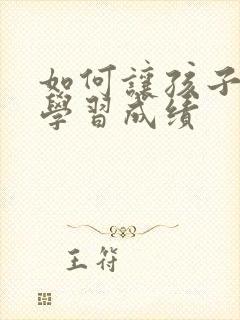 如何讓孩子
學習成績
王符